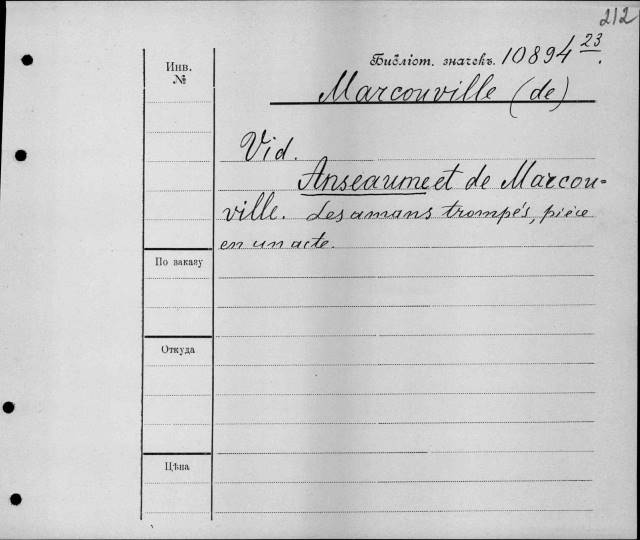 212
Инв.
№
Библіот. значекъ. 10894 23.
Marcouville (de)
Vid.
Anseaume et de Marcou=
ville. Les amans trompés, pièce
en un acte.
По заказу
Откуда
Цѣна